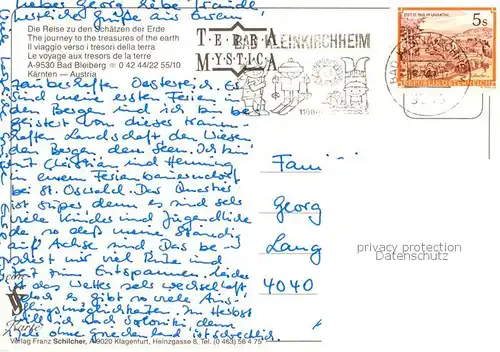 Lieber Georg liebe Traude
herzliche Grüße aus
Die Reise zu den Schätzen der Erde
The journey to the treasures of the earth
Il viaggio verso i tesori della terra
Le voyage aux tresors de la terre
A-9530 Bad Bleiberg ☏ 0 42 44/22 55/10
Kärnten — Austria
TERRA MYSTICA
BAD KLEINKIRCHHEIM
5 S
REPUBLIK ÖSTERREICH
zauberhaften Oesterreich. Es
sind meine ersten Ferien in
den Bergen und ich bin
begeistert von dieser traum-
haften Landschaft den Wiesen
den Bergen den Seen. Ich bin
mit Christian und Henning
in einem Ferienbauerndorf
bei St. Oswald. Das Quartier
ist super denn es sind sehr
viele Kinder und Jugendliche
da so daß meine ständig
auf Achse sind. Das be-
schert mir viel Ruhe und
Zeit zum Entspannen. Leider
ist das Wetter sehr wechselhaft
doch es gibt so viele Aus-
flugsmöglichkeiten. Im Herbst
will ich nach Saloniki denn
ohne Griechenland ist schrecklich.
Fami
Georg
Lang
4040
privacy protection
Datenschutz
Karte
Verlag Franz Schilcher, A-9020 Klagenfurt, Heinzgasse 8, Tel. (0 463) 56 4 75